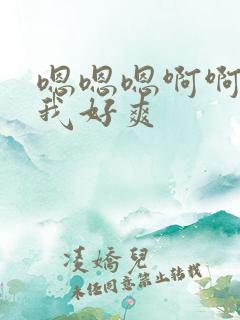 嗯嗯嗯啊啊
我好爽
凌嬌兒
未经同意禁止转载